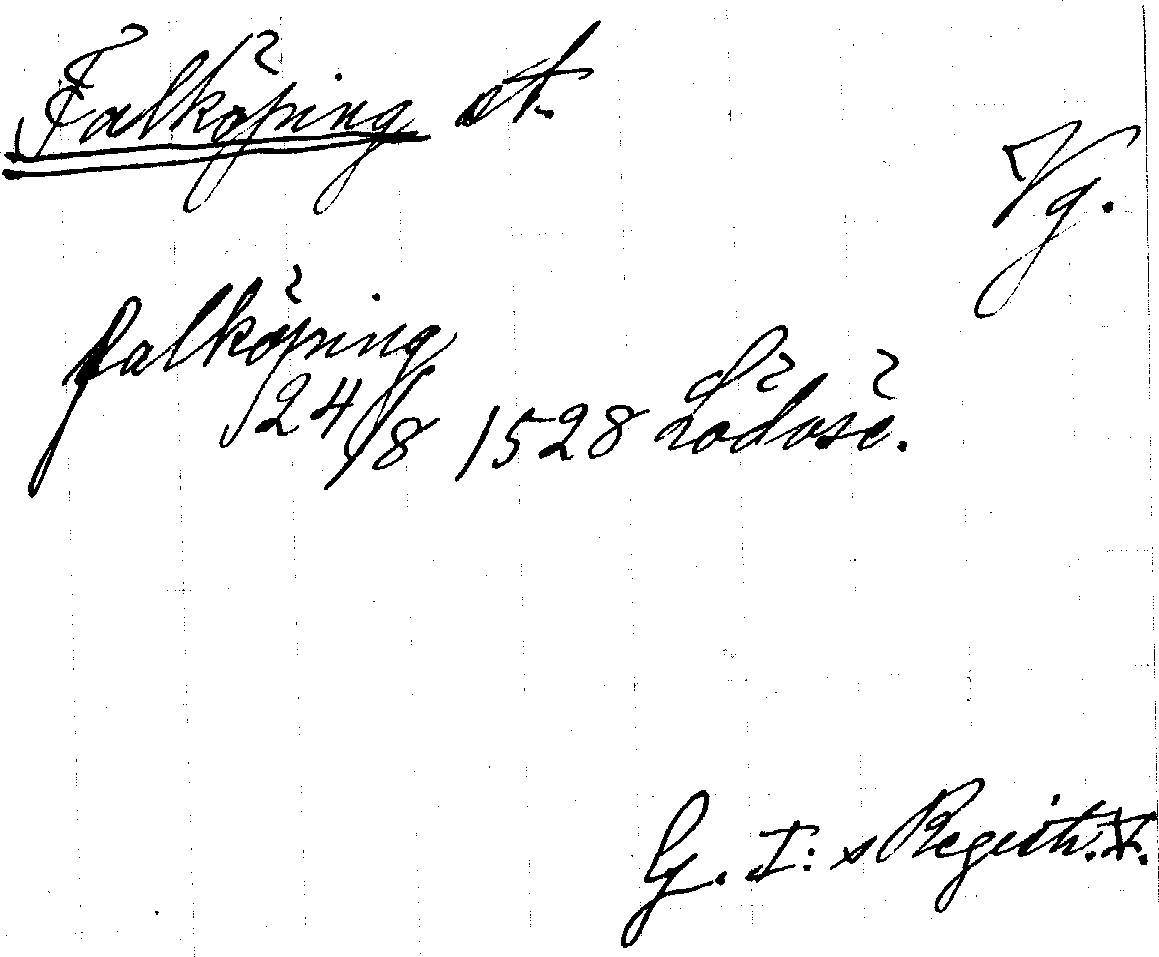 Falköping st.
Vg.
falköping
24/8 1528 Lödöse.
G. I: s Registr. V.